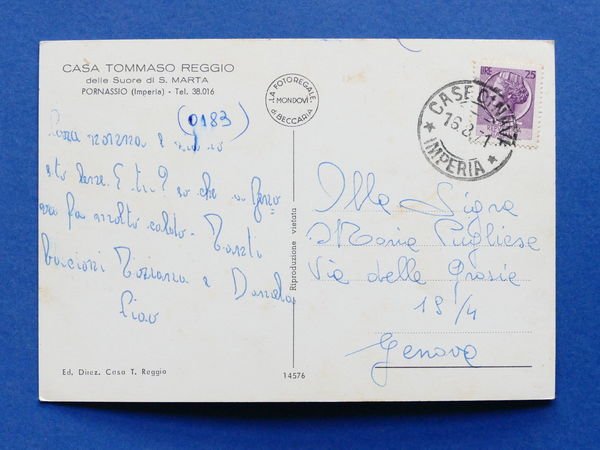 CASA TOMMASO REGGIO
delle Suore di S. MARTA
PORNASSIO (Imperia) - Tel. 38.016
(0183)
LA FOTOREGALE
MONDOVÌ
di BECCARIA
LIRE 25
CASE DI NAVA
16.8.71
★ IMPERIA ★
Cara nonna e
sto bene. E tu? so che a Geno
va fa molto caldo. Tanti
bacioni Tiziana e Daniela
Ciao
Alla Sig.ra
Maria Pugliese
Via delle Grazie
19/4
Genova
Riproduzione vietata
Ed. Direz. Casa T. Reggio
14576